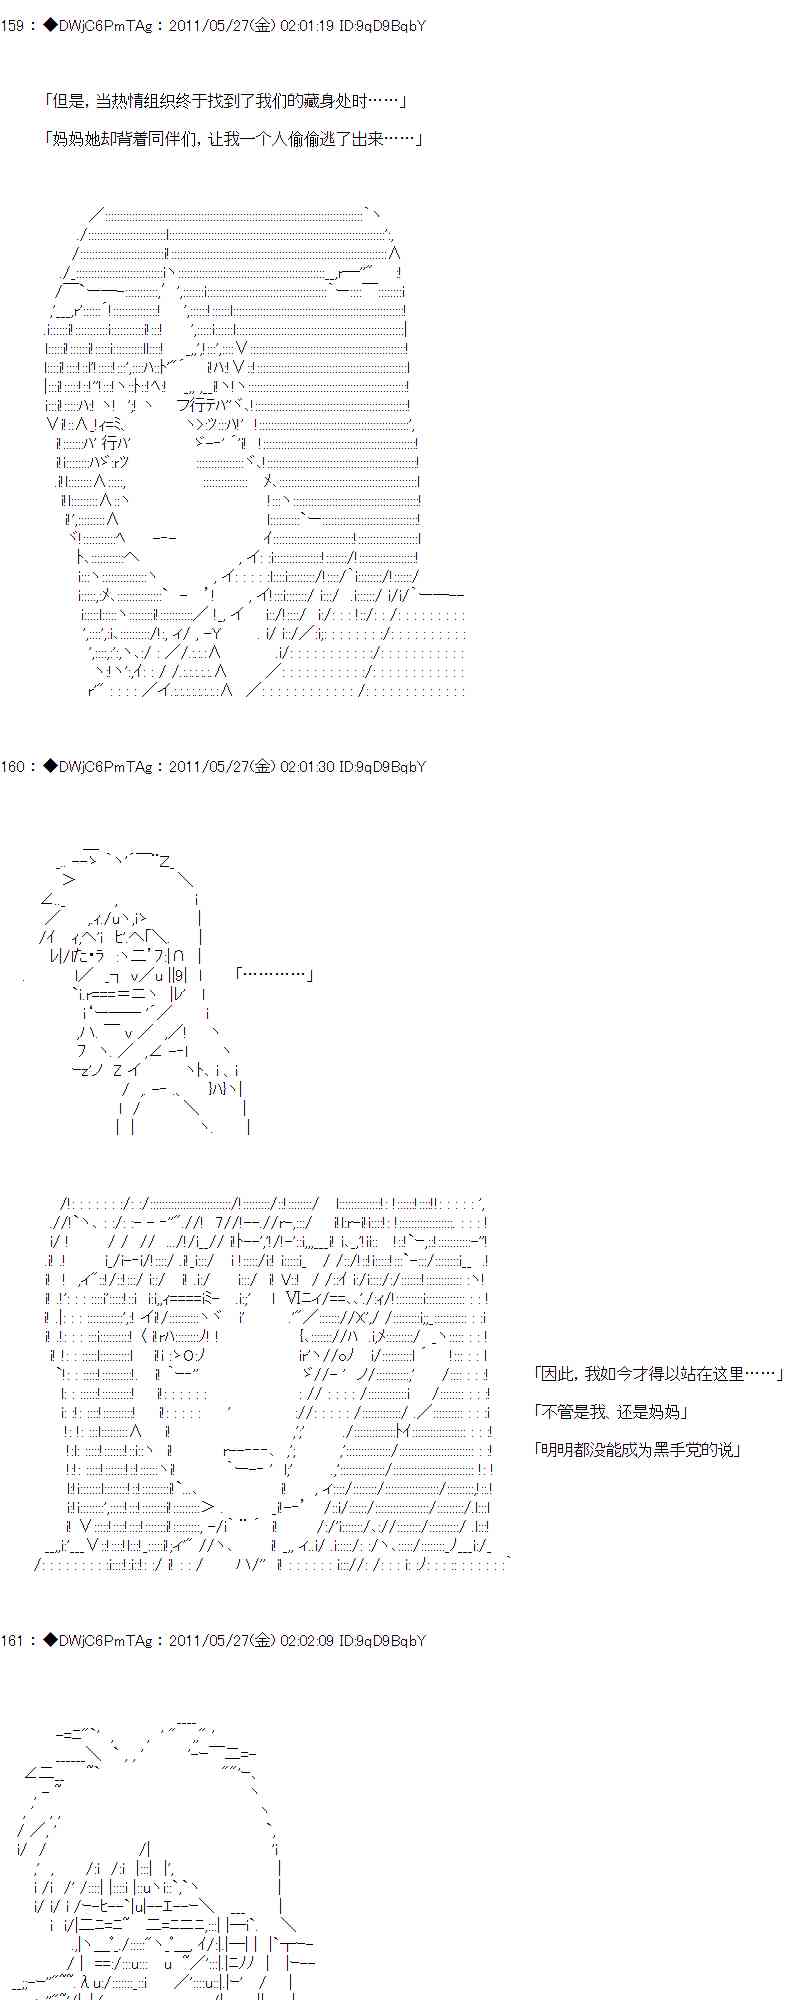 159 ： ◆DWjC6PmTAg ： 2011/05/27(金) 02:01:19 ID:9qD9BqbY
「但是，当热情组织终于找到了我们的藏身处时……」
「妈妈她却背着同伴们，让我一个人偷偷逃了出来……」
160 ： ◆DWjC6PmTAg ： 2011/05/27(金) 02:01:30 ID:9qD9BqbY
「…………」
「因此，我如今才得以站在这里……」
「不管是我、还是妈妈」
「明明都没能成为黑手党的说」
161 ： ◆DWjC6PmTAg ： 2011/05/27(金) 02:02:09 ID:9qD9BqbY